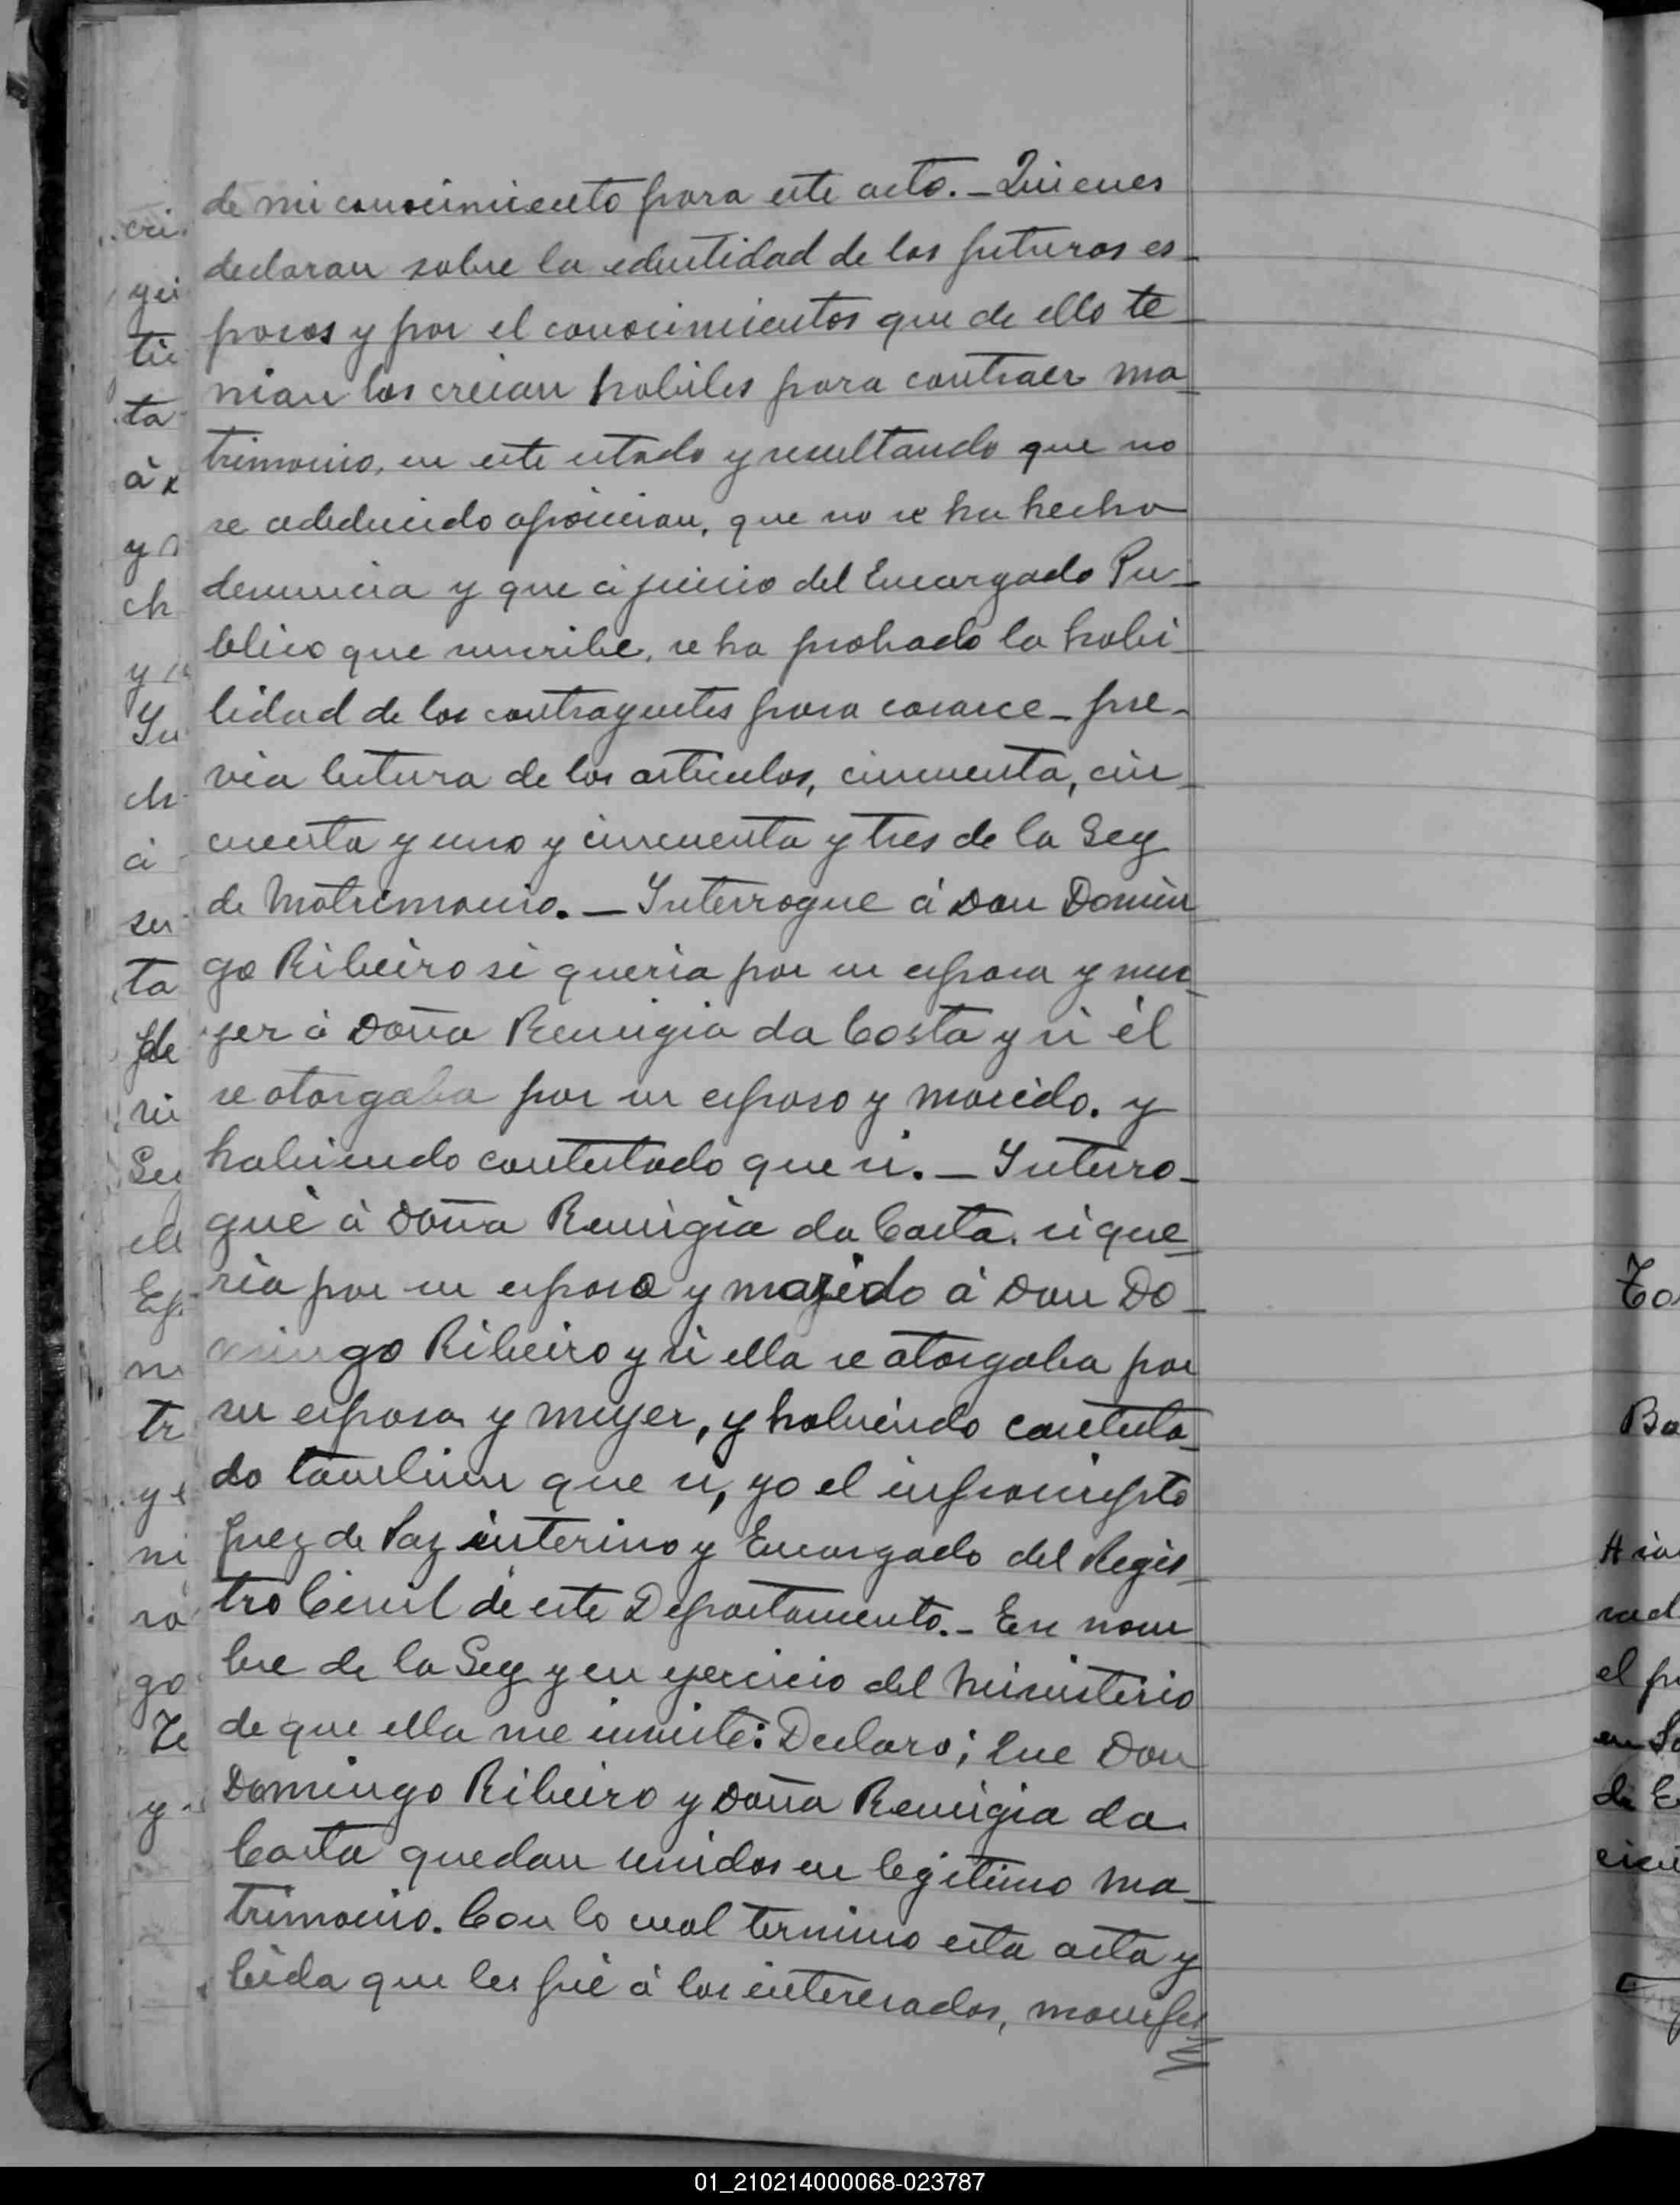 de mi conocimiento para este acto. _ Quienes
declaran sobre la edentidad de los futuros es_
posos y por el conocimientos que de ello te_
nian los creian habiles para contraer ma_
trimonio, en este estado y resultando que no
se adeducido oposicion, que no se ha hecho
denuncia y que á juicio del Encargado Pu_
blico que suscribe, se ha probado la habi_
lidad de los contrayentes para casarce _ pre_
via letura de los articulos, cincuenta, cin_
cuenta y uno y cincuenta y tres de la Ley
de Matrimonio. _ Interrogue á Don Domin
go Ribeiro si queria por su esposa y mu_
jer á Doña Remigia da Costa y si él
se otorgaba por su esposo y marido. y
habiendo contestado que si. _ Interro_
gué á Doña Remigia da Costa. si que_
ria por su esposo y marido á Don Do_
mingo Ribeiro y si ella se otorgaba por
su esposa y mujer, y habiendo contesta_
do tambien que si, yo el infrascripto
Juez de Paz interino y Encargado del Regis_
tro Civil de este Departamento. _ En nom_
bre de la Ley y en ejercicio del Ministerio
de que ella me inviste: Declaro; Que Don
Domingo Ribeiro y Doña Remigia da
Costa quedan unidos en legitimo ma_
trimonio. Con lo cual termino esta acta y
leida que les fué á los interesados, manifes
01_210214000068-023787